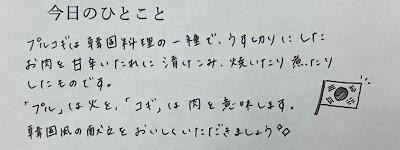 今日のひとこと
プルコギは韓国料理の一種で、うす切りにした
お肉を甘辛いたれに漬けこみ、焼いたり煮たり
したものです。
「プル」は火を、「コギ」は肉を意味します。
韓国風の献立をおいしくいただきましょう◇◇